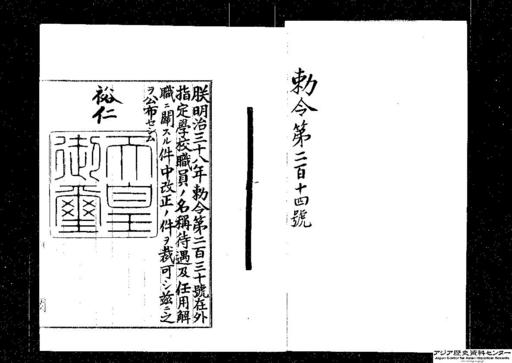 勅令第二百十四號
朕明治三十八年勅令第二百三十號在外
指定學校職員ノ名稱待遇及任用解
職ニ關スル件中改正ノ件ヲ裁可シ茲ニ之
ヲ公布セシム
裕仁
天皇
御璽
アジア歴史資料センター
Japan Center for Asian Historical Records